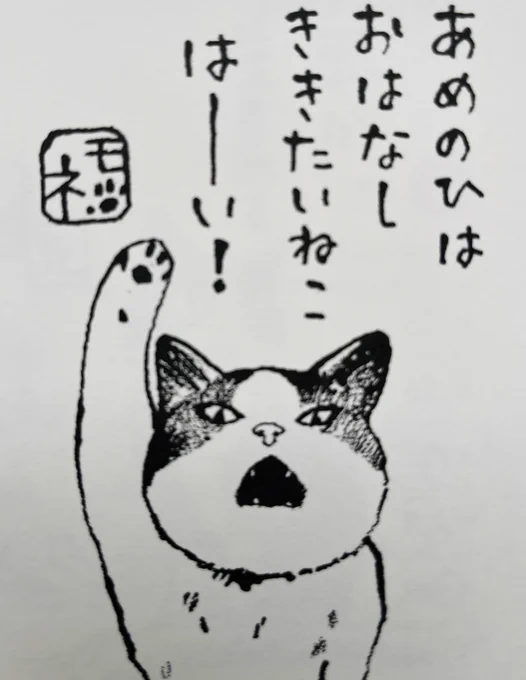 あめのひは
おはなし
ききたいねこ
はーい！
モネ